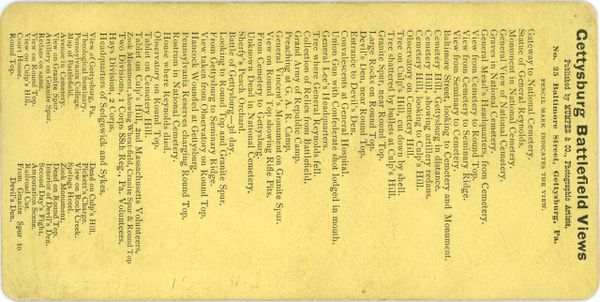 Gettysburg Battlefield Views
Published by MUMPER & CO., Photographic Artists,
No. 25 Baltimore Street, Gettysburg, Pa.
PENCIL MARK INDICATES THE VIEW.
Gateway to National Cemetery.
Statue of General Reynolds.
Monument in National Cemetery.
General View of National Cemetery.
Graves and Grand Column.
General Mead's Headquarters, from Cemetery.
View from Cemetery to Round Top.
View from Cemetery to Seminary Ridge.
View from Seminary to Cemetery.
Baltimore Street, looking to Cemetery and Monument.
Cemetery Hill, Monument in distance.
Cemetery Hill, showing artillery redans,
Cemetery, looking to Culp's Hill.
Observatory on Cemetery Hill.
Tree on Culp's Hill, cut down by shell.
Tree shattered by bullets at Culp's Hill.
Granite Spur and Round Top.
Large Rocks on Round Top.
Devil's Den, near Round Top.
Entrance to Devil's Den.
Convalescents at General Hospital.
Union Gun with Confederate shot lodged in mouth.
General Lee's Headquarters.
Tree where General Reynolds fell.
Collection of Relics from Battlefield.
Grand Army of Republic Camp.
Preaching at G. A. R. Camp.
General Vincent's Monument on Granite Spur.
View on Round Top showing Rifle Pits.
From Cemetery to Gettysburg.
Unknown Dead in National Cemetery.
Sherfy's Peach Orchard.
Battle of Gettysburg—3d day.
Looking to Round Top and Granite Spur.
From Round Top to Seminary Ridge.
View taken from Observatory on Round Top.
Hancock Wounded at Gettysburg.
Pennsylvania Reserves charging Round Top.
Rostrum in National Cemetery.
House where Reynolds died.
Observatory on Round Top.
Tablet on Cemetery Hill.
Tablet on Culp's Hill, 2nd Massachusetts Volunteers.
Zook Monument, including Wheatfield, Granite Spur & Round Top
Hays Division, 2 Corps.
Two Divisions, 2 Corps 88th Reg., Pa. Volunteers.
Headquarters of Sedgewick and Sykes.
View of Gettysburg, Pa.
Theological Seminary.
Pennsylvania College.
Map of Battlefield.
Avenue in Cemetery.
View on Granite Spur.
Artillery on Granite Spur.
Redans on same.
View from Round Top.
View on Culp's Hill.
Court House.
Round Top.
Dead on Culp's Hill.
Pickett's Charge.
View on Rock Creek.
Wolf's Hill.
Zook Monument.
Dead on Round Top.
Interior of Devil's Den.
Second Day's Fight.
Amputation Scene.
Railroad Cut.
From Granite Spur to
Devil's Den.